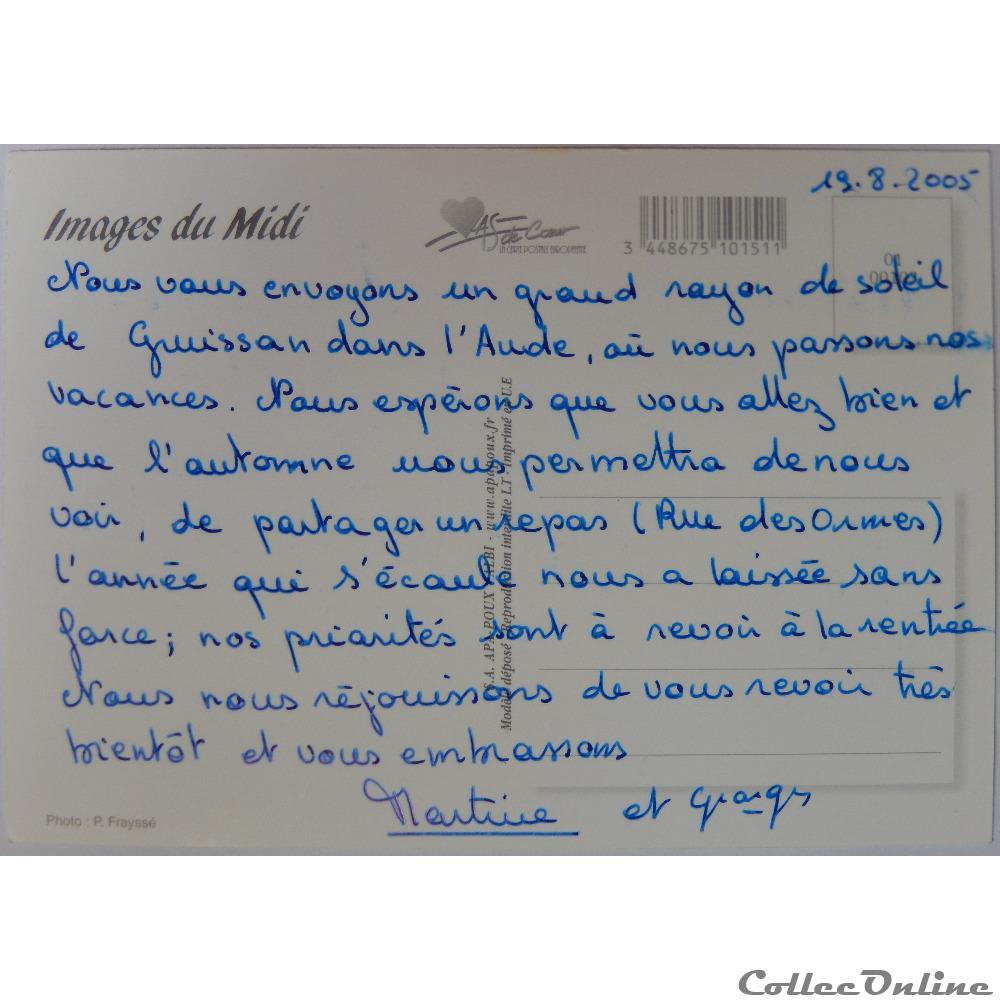 19.8.2005
Images du Midi
AS de Cœur
LA CARTE POSTALE EUROPEENNE
3 448675 101511
01
Nous vous envoyons un grand rayon de soleil
de Gruissan dans l'Aude, où nous passons nos
vacances. Nous espérons que vous allez bien et
que l'automne nous permettra de nous
voir, de partager un repas (Rue des Ormes)
l'année qui s'écoule nous a laissée sans
force; nos priorités sont à revoir à la rentrée
Nous nous réjouissons de vous revoir très
bientôt et vous embrassons
Martine et Georges
S.A. APA-POUX ALBI - www.apapoux.fr
Modèle déposé - Reproduction interdite LT - Imprimé en U.E
Photo : P. Frayssé
CollecOnline